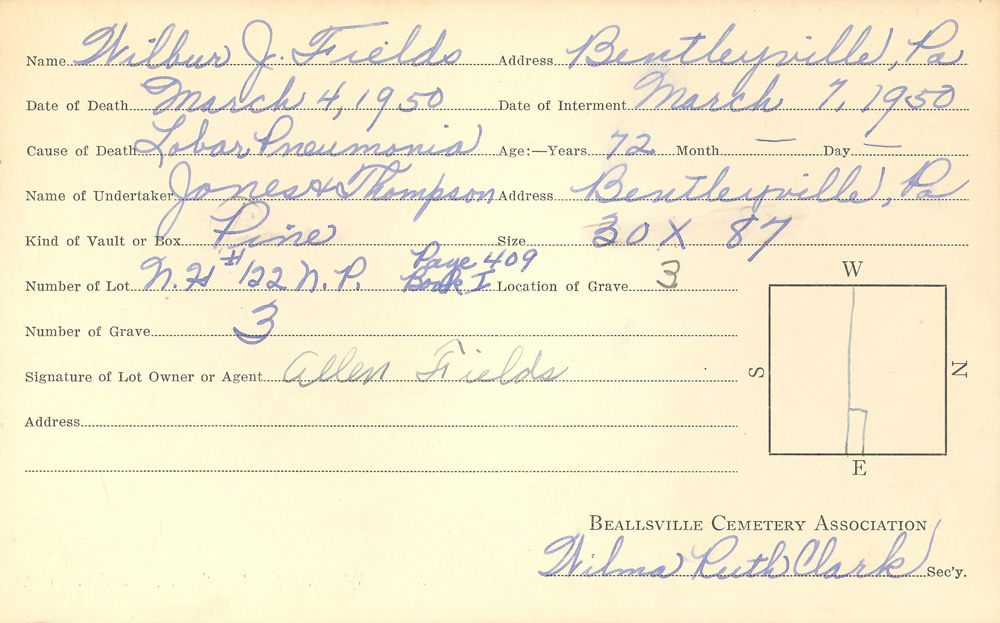 Name Wilbur J. Fields Address Bentleyville, Pa
Date of Death March 4, 1950 Date of Interment March 7, 1950
Cause of Death Lobar Pneumonia Age:—Years 72 Month — Day —
Name of Undertaker Jones & Thompson Address Bentleyville, Pa
Kind of Vault or Box Pine Size 30 X 87
Page 409
Number of Lot N. H #122 N. P. Book I Location of Grave 3
Number of Grave 3
Signature of Lot Owner or Agent Allen Fields
Address
W
S N
E
BEALLSVILLE CEMETERY ASSOCIATION
Wilma Ruth Clark Sec'y.